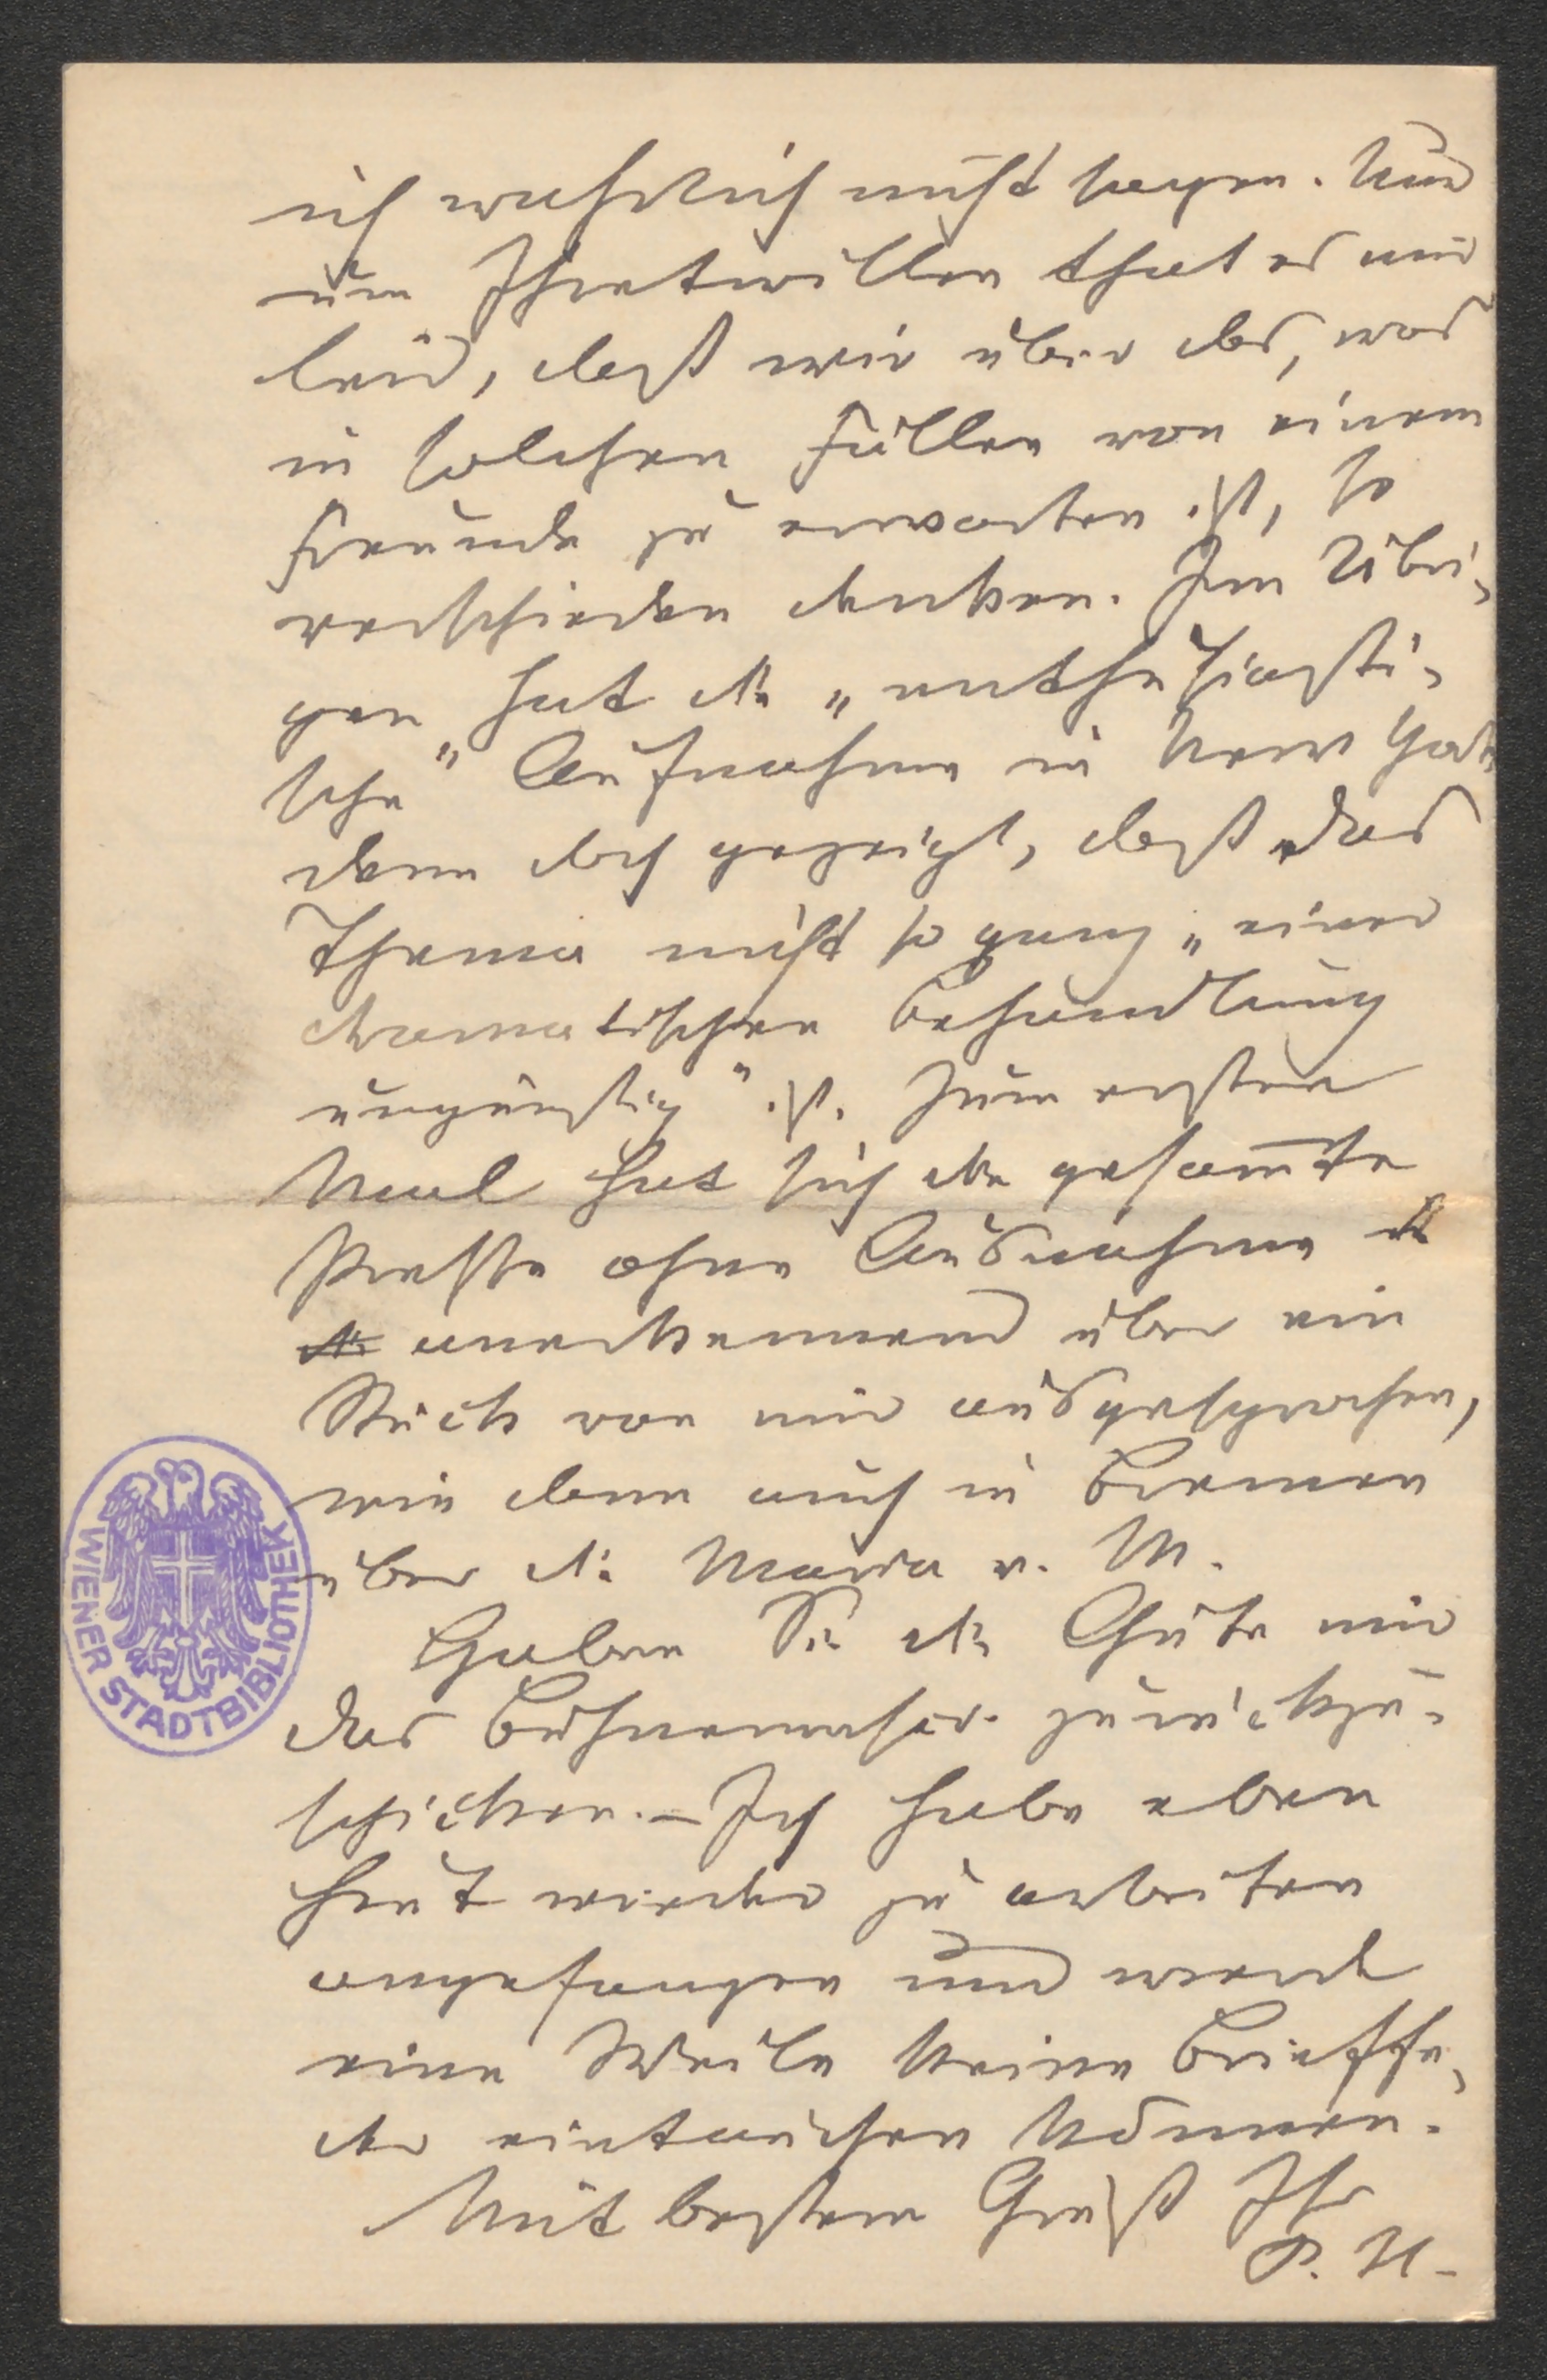 ich wahrlich nicht hegen. Nur
um Ihretwillen thut es mir
leid, daß wir über das, was
in solchen Fällen von einem
Freunde zu erwarten ist, so
verschieden denken. Im Übri-
gen hat die „enthusiasti-
sche“ Aufnahme in New York
denn doch gezeigt, daß das
Thema nicht so ganz „einer
dramatischen Behandlung
ungünstig“ ist. Zum ersten
Mal hat sich die gesammte
Presse ohne Ausnahme
anerkennend über ein
Stück von mir ausgesprochen,
wie denn auch in Bremen
über die Maria v. M.
Haben Sie die Güte mir
das Bühnenmscr. zurückzu-
schicken. – Ich habe eben
heut wieder zu arbeiten
angefangen und werde
eine Weile keine Brieffe-
der eintauchen können.
Mit bestem Gruß Ihr
P. H.
WIENER STADTBIBLIOTHEK